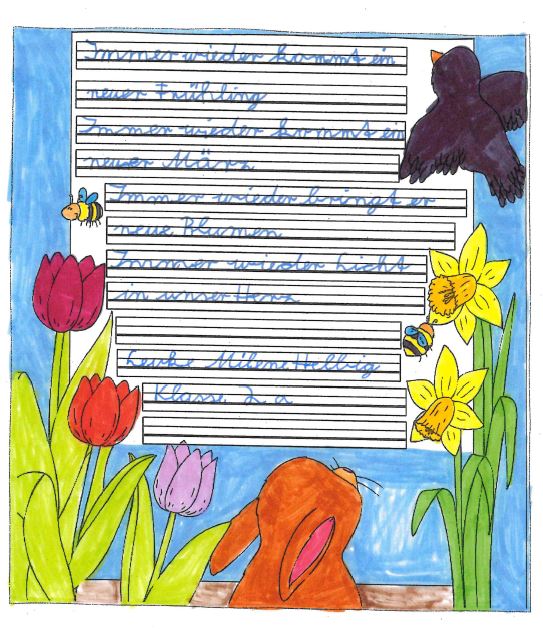 Immer wieder kommt ein
neuer Frühling
Immer wieder kommt ein
neuer März
Immer wieder bringt er
neue Blumen
Immer wieder Licht
in unser Herz
Levke Milene Helbig
Klasse 2a